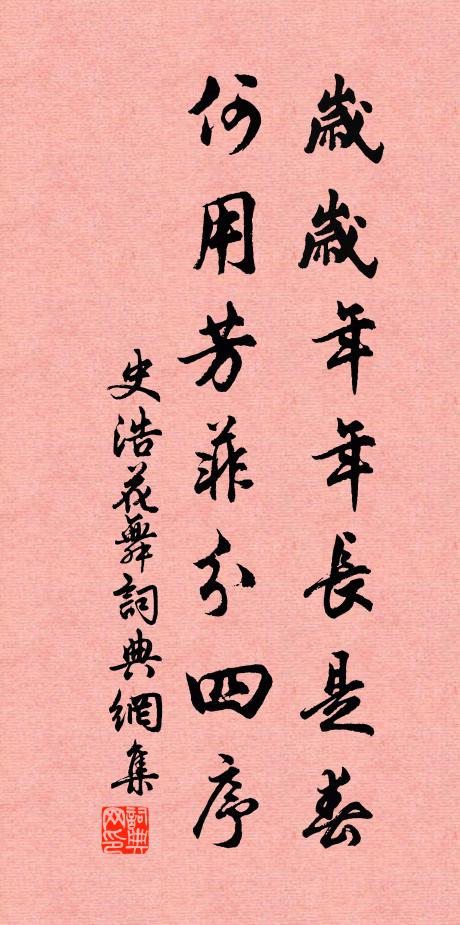 歲歲年年長是春
何用芳菲分四序
史浩花舞詞典網集
詞典网印